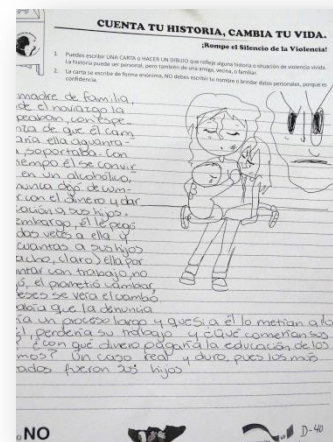 CUENTA TU HISTORIA, CAMBIA TU VIDA.
¡Rompe el Silencio de la Violencia!
1. Puedes escribir UNA CARTA o HACER UN DIBUJO que refleje alguna historia o situación de violencia vivida.
La historia puede ser personal, pero también de una amiga, vecina, o familiar.
2. La carta se escribe de forma anónima, NO debes escribir tu nombre o brindar datos personales, porque es
confidencial.
madre de familia,
de el noviazgo la
peaban, con espe-
nza de que él cam
aría ella aguanta-
y soportaba. Con
iempo él se convir
en un alcohólico,
nunca dejó de cum-
r con el dinero y dar
cación a sus hijos.
embargo, él le pegó
das veces a ella y
cuantas a sus hijos
acho, claro) ella por
ntar con trabajo, no
él prometió cambiar,
eses se vería el cambio
abía que la denuncia
ía un proceso largo y que si a él lo metían a la
el, perdería su trabajo y ¿qué comerían sus
? ¿con qué dinero pagaría la educación de los
mos? Un caso real y duro, pues los más
tados fueron sus hijos
NO
D-40